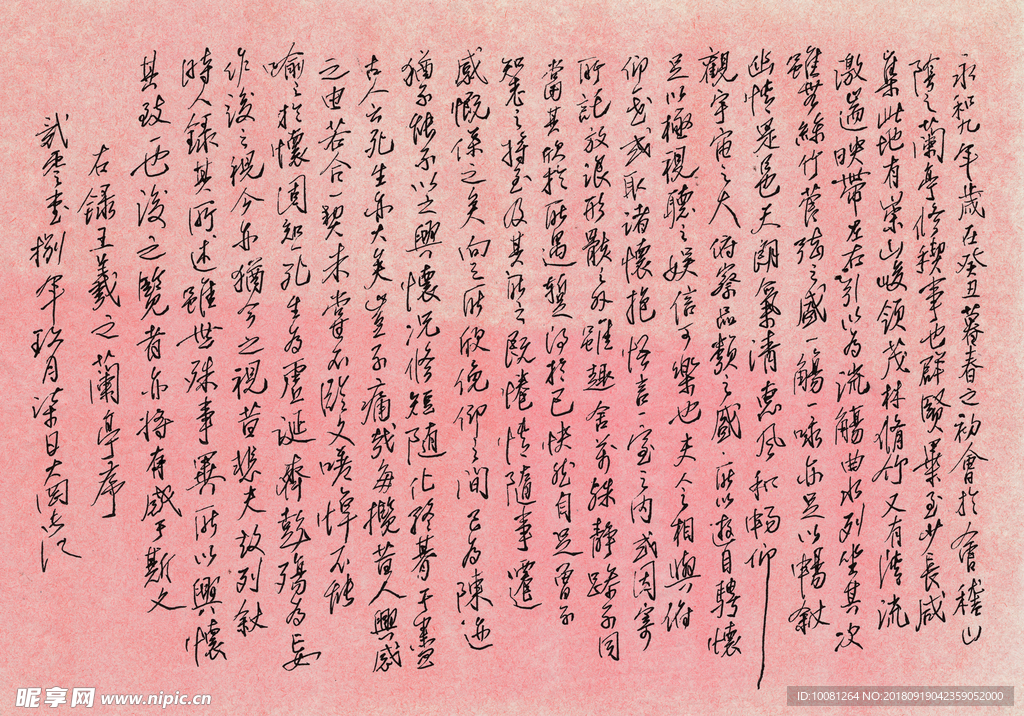 永和九年歲在癸丑暮春之初會於會稽山
陰之蘭亭脩禊事也群賢畢至少長咸
集此地有崇山峻領茂林脩竹又有清流
激湍映帶左右引以為流觴曲水列坐其次
雖無絲竹管弦之盛一觴一詠亦足以暢敘
幽情是日也天朗氣清惠風和暢仰
觀宇宙之大俯察品類之盛所以遊目騁懷
足以極視聽之娛信可樂也夫人之相與俯
仰一世或取諸懷抱悟言一室之內或因寄
所託放浪形骸之外雖趣舍萬殊靜躁不同
當其欣於所遇暫得於己快然自足曾不
知老之將至及其所之既惓情隨事遷
感慨係之矣向之所欣俛仰之間已為陳迹
猶不能不以之興懷況脩短隨化終期于盡
古人云死生亦大矣豈不痛哉每攬昔人興感
之由若合一契未嘗不臨文嗟悼不能
喻之於懷固知一死生為虛誕齊彭殤為妄
作後之視今亦猶今之視昔悲夫故列敘
時人錄其所述雖世殊事異所以興懷
其致一也後之覽者亦將有感于斯文
右錄王羲之蘭亭序
貳零壹捌年玖月柒日大
昵享网 www.nipic.cn
ID:10081264 NO:20180919042359052000